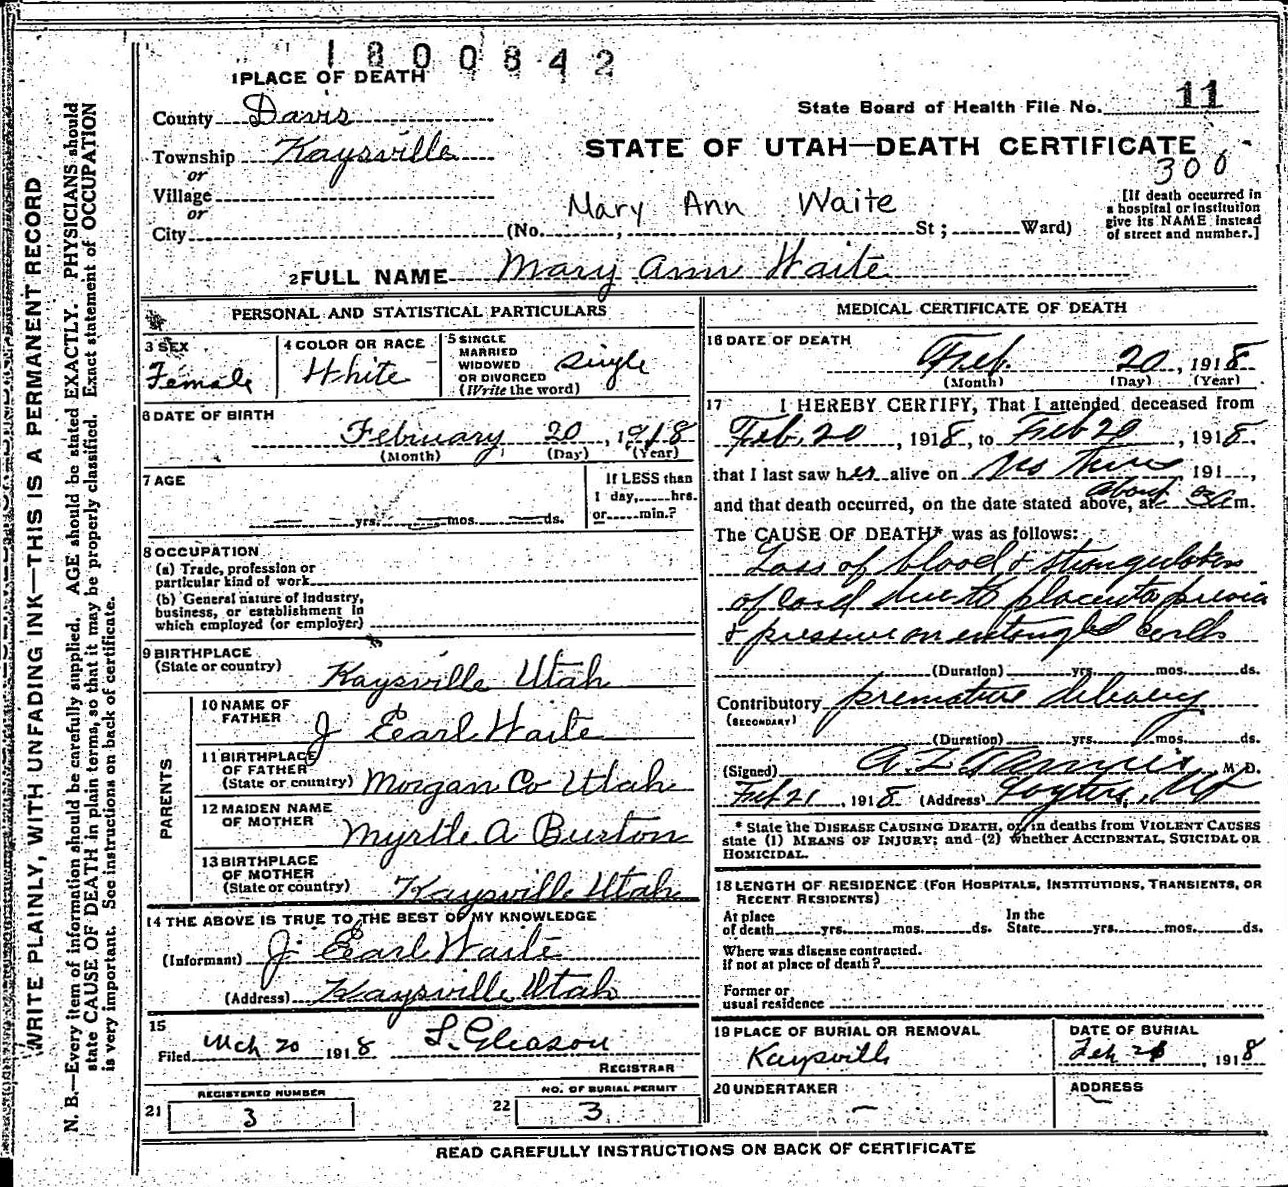 1800842
1 PLACE OF DEATH
State Board of Health File No. 11
County Davis
STATE OF UTAH—DEATH CERTIFICATE
Township Kaysville
300
or
Village
[If death occurred in
a hospital or institution
give its NAME instead
of street and number.]
or
Mary Ann Waite
City (No. , St ; Ward)
2 FULL NAME Mary Ann Waite
PERSONAL AND STATISTICAL PARTICULARS
3 SEX
Female
4 COLOR OR RACE
White
5 SINGLE
MARRIED
WIDOWED
OR DIVORCED
(Write the word)
Single
6 DATE OF BIRTH
February 20, 1918
(Month) (Day) (Year)
7 AGE
— yrs. — mos. — ds.
If LESS than
1 day, hrs.
or min.?
8 OCCUPATION
(a) Trade, profession or
particular kind of work
(b) General nature of industry,
business, or establishment in
which employed (or employer)
9 BIRTHPLACE
(State or country)
Kaysville Utah
PARENTS
10 NAME OF
FATHER
J Earl Waite
11 BIRTHPLACE
OF FATHER
(State or country) Morgan Co Utah
12 MAIDEN NAME
OF MOTHER
Myrtle A Burton
13 BIRTHPLACE
OF MOTHER
(State or country) Kaysville Utah
14 THE ABOVE IS TRUE TO THE BEST OF MY KNOWLEDGE
(Informant) J. Earl Waite
(Address) Kaysville Utah
15
Filed Mch 20 1918 L. Gleason
REGISTRAR
REGISTERED NUMBER
21 3
NO. OF BURIAL PERMIT
22 3
MEDICAL CERTIFICATE OF DEATH
16 DATE OF DEATH
Feb. 20, 1918
(Month) (Day) (Year)
17 I HEREBY CERTIFY, That I attended deceased from
Feb. 20, 1918, to Feb 20, 1918,
that I last saw her alive on No time 191 ,
and that death occurred, on the date stated above, at about m.
The CAUSE OF DEATH* was as follows:
Loss of blood & strangulation
of cord due to placenta previa
& pressure on entangled cords
(Duration) yrs. mos. ds.
Contributory premature delivery
(SECONDARY)
(Duration) yrs. mos. ds.
(Signed) A. Z. M. D.
Feb 21, 1918 (Address) Layton, Ut
* State the DISEASE CAUSING DEATH, or, in deaths from VIOLENT CAUSES
state (1) MEANS OF INJURY; and (2) whether ACCIDENTAL, SUICIDAL OR
HOMICIDAL.
18 LENGTH OF RESIDENCE (FOR HOSPITALS, INSTITUTIONS, TRANSIENTS, OR
RECENT RESIDENTS)
At place
of death yrs. mos. ds.
In the
State yrs. mos. ds.
Where was disease contracted.
if not at place of death?
Former or
usual residence
19 PLACE OF BURIAL OR REMOVAL
Kaysville
DATE OF BURIAL
Feb , 1918
20 UNDERTAKER
—
ADDRESS
—
READ CAREFULLY INSTRUCTIONS ON BACK OF CERTIFICATE
WRITE PLAINLY, WITH UNFADING INK—THIS IS A PERMANENT RECORD
N. B.—Every item of information should be carefully supplied. AGE should be stated EXACTLY. PHYSICIANS should
state CAUSE OF DEATH in plain terms, so that it may be properly classified. Exact statement of OCCUPATION
is very important. See instructions on back of certificate.